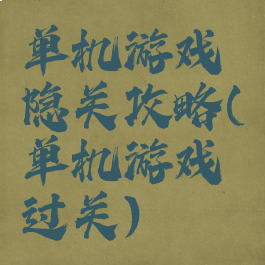 单机游戏
隐关攻略(
单机游戏
过关)